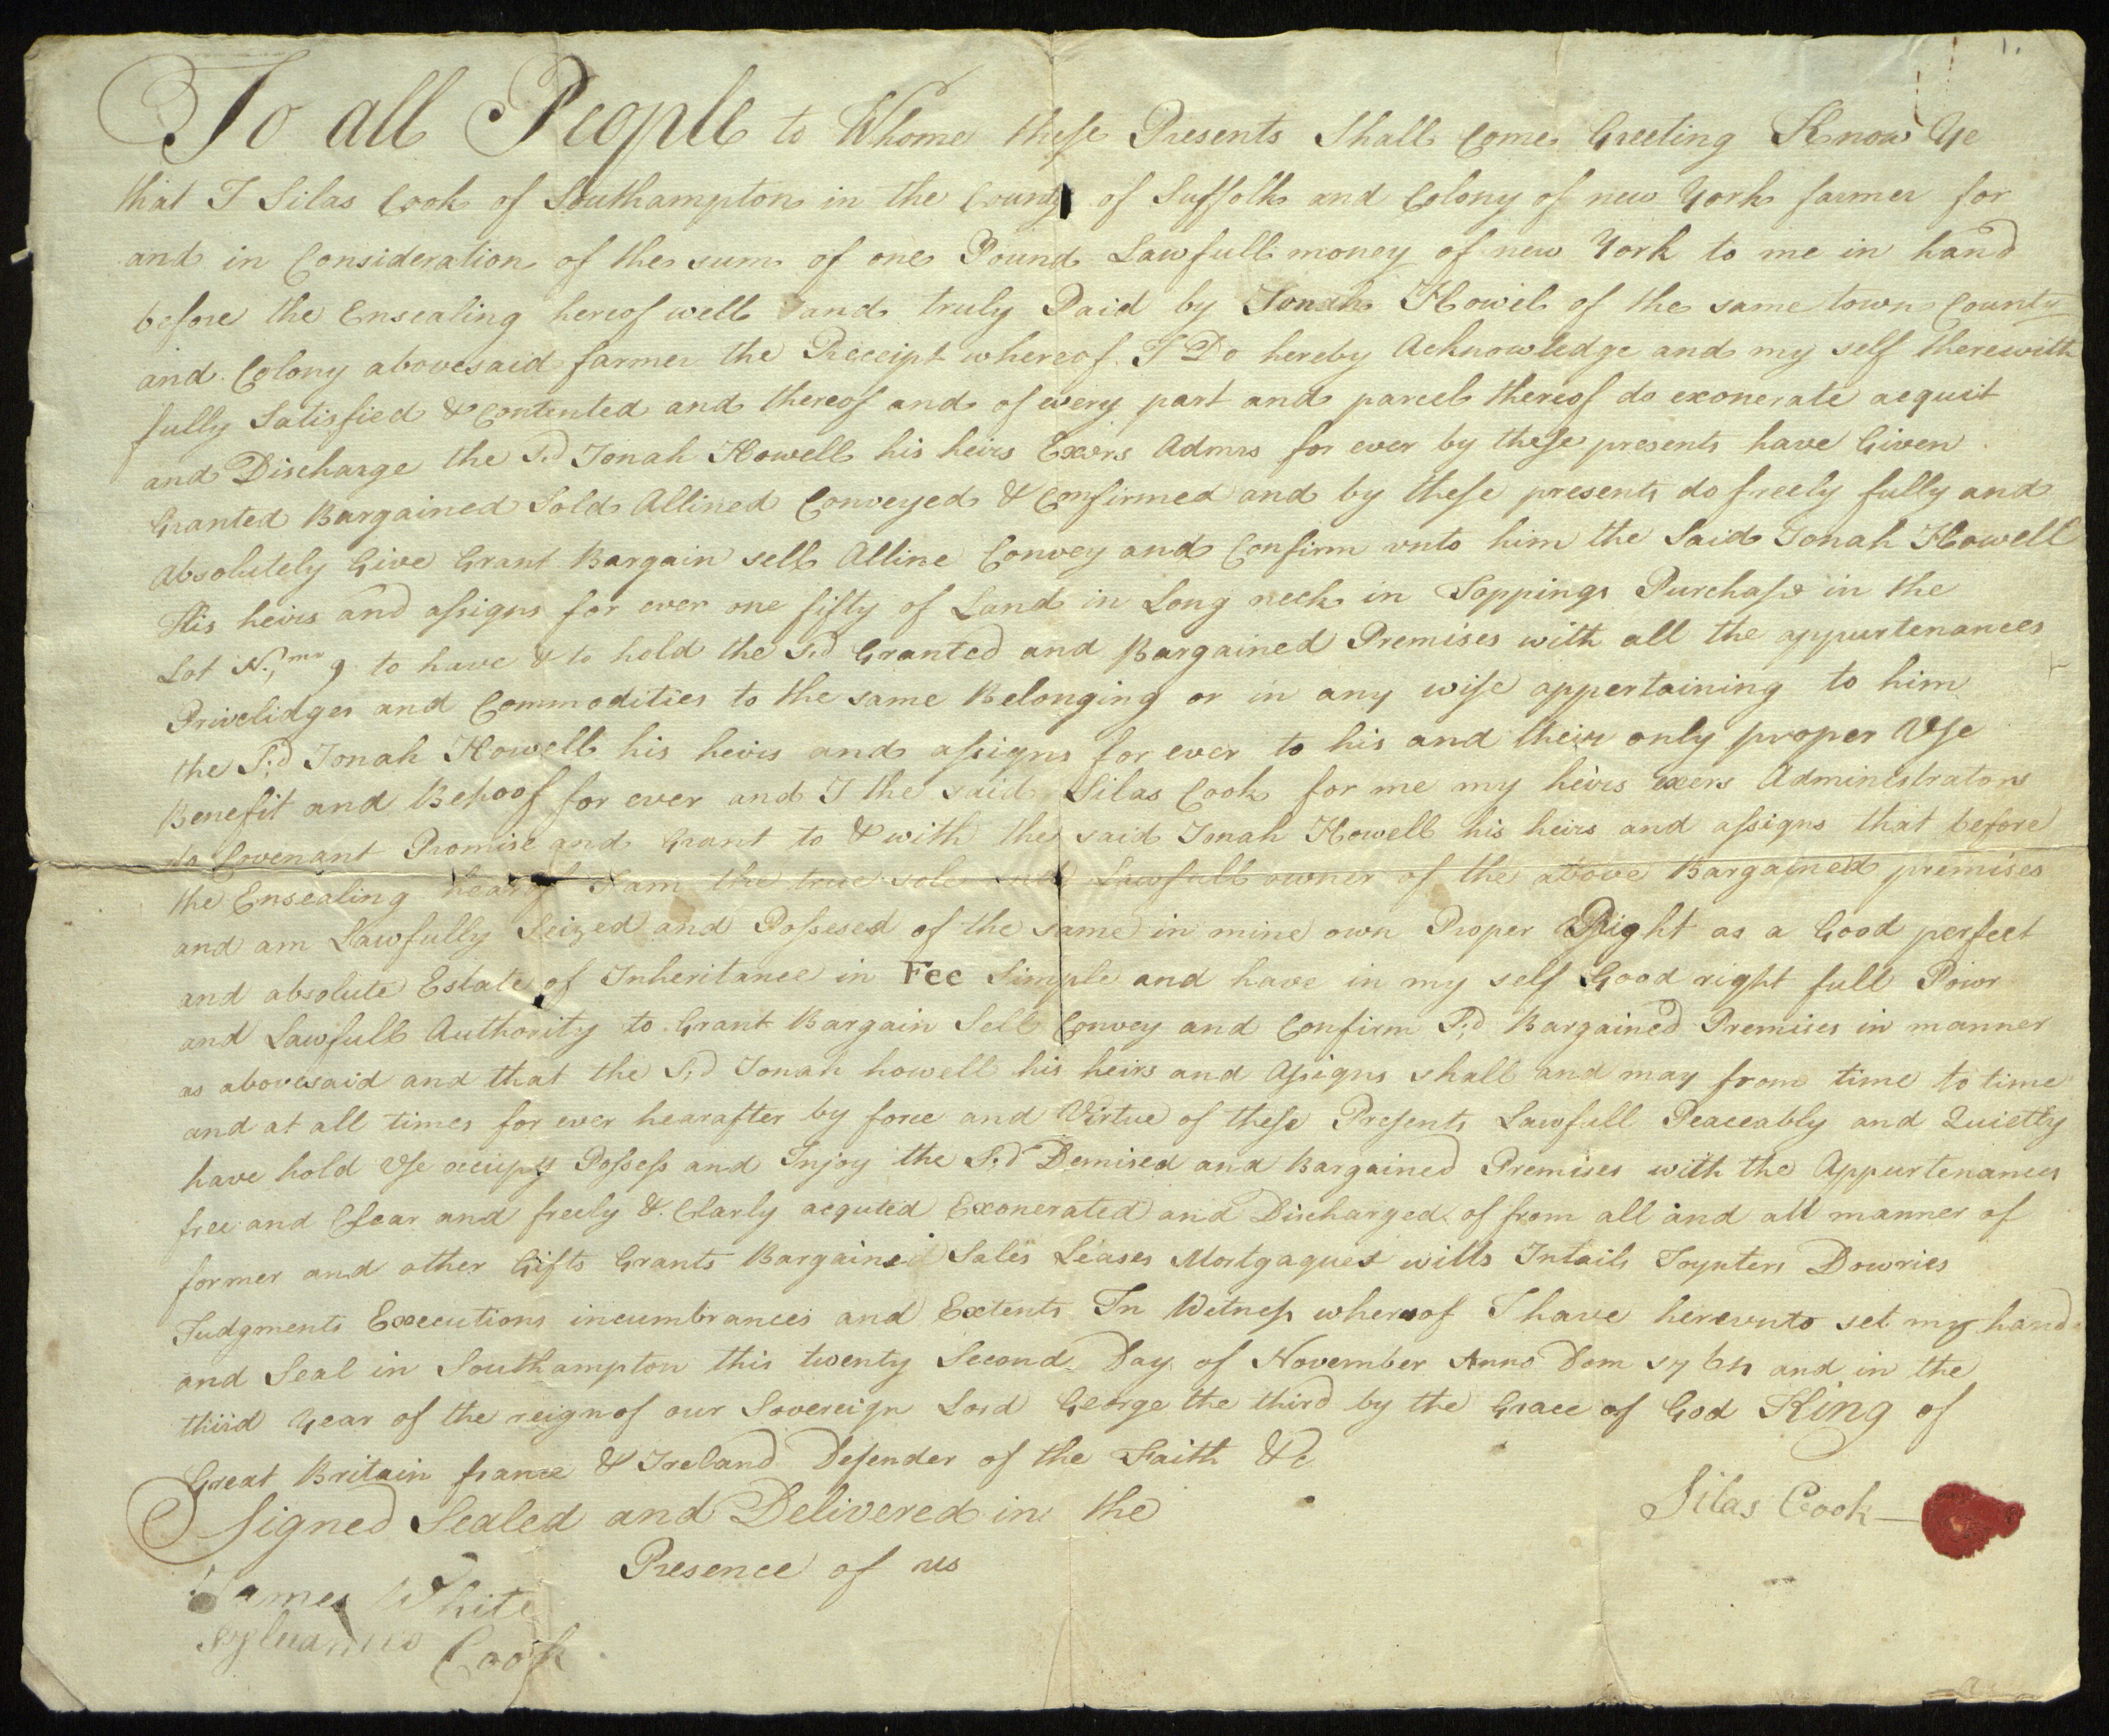 To all People to Whome these Presents Shall Come Greeting Know Ye
that I Silas Cook of Southampton in the County of Suffolk and Colony of new York farmer for
and in Consideration of the sum of one Pound Lawfull money of new York to me in hand
before the Ensealing hereof well and truly Paid by Jonah Howel of the same town County
and Colony abovesaid farmer the Receipt whereof I Do hereby Acknowledge and my self therewith
fully Satisfied & Contented and thereof and of every part and parcel thereof do exonerate acquit
and Discharge the Sd Jonah Howell his heirs Exers Admrs for ever by these presents have Given
Granted Bargained Sold Allined Conveyed & Confirmed and by these presents do freely fully and
Absolutely Give Grant Bargain sell Alline Convey and Confirm vnto him the Said Jonah Howell
His heirs and assigns for ever one fifty of Land in Long neck in Toppings Purchase in the
Lot 9 to have & to hold the Sd Granted and Bargained Premises with all the appurtenances
Privelidges and Commodities to the same Belonging or in any wise appertaining to him
the Sd Jonah Howell his heirs and assigns for ever to his and their only proper Vse
Benefit and Behoof for ever and I the said Silas Cook for me my heirs exers Administrators
do Covenant Promise and Grant to & with the said Jonah Howell his heirs and assigns that before
the Ensealing hearof I am the true sole and Lawfull owner of the above Bargained premises
and am Lawfully Seized and Possesed of the same in mine own Proper Right as a Good perfect
and absolute Estate of Inheritance in Fee Simple and have in my self Good right full Powr
and Lawfull Authority to Grant Bargain Sell Convey and Confirm Sd Bargained Premises in manner
as abovesaid and that the Sd Jonah howell his heirs and Assigns shall and may from time to time
and at all times for ever hearafter by force and Virtue of these Presents Lawfull Peaceably and Quietly
have hold Vse occupy Possess and Injoy the Sd Demised and Bargained Premises with the Appurtenances
free and Clear and freely & Clarly acquted Exonerated and Discharged of from all and all manner of
former and other Gifts Grants Bargained Sales Leases Mortgagues wills Intails Joynters Dowries
Judgments Executions incumbrances and Extents In Witness whereof I have herevnto set my hand
and Seal in Southampton this twenty Second Day of November Anno Dom and in the
third Year of the reign of our Sovereign Lord George the third by the Grace of God King of
Great Britain france & Ireland Defender of the Faith &c
Signed Sealed and Delivered in the
Presence of us
Silas Cook
James White
Sylvanus Cook